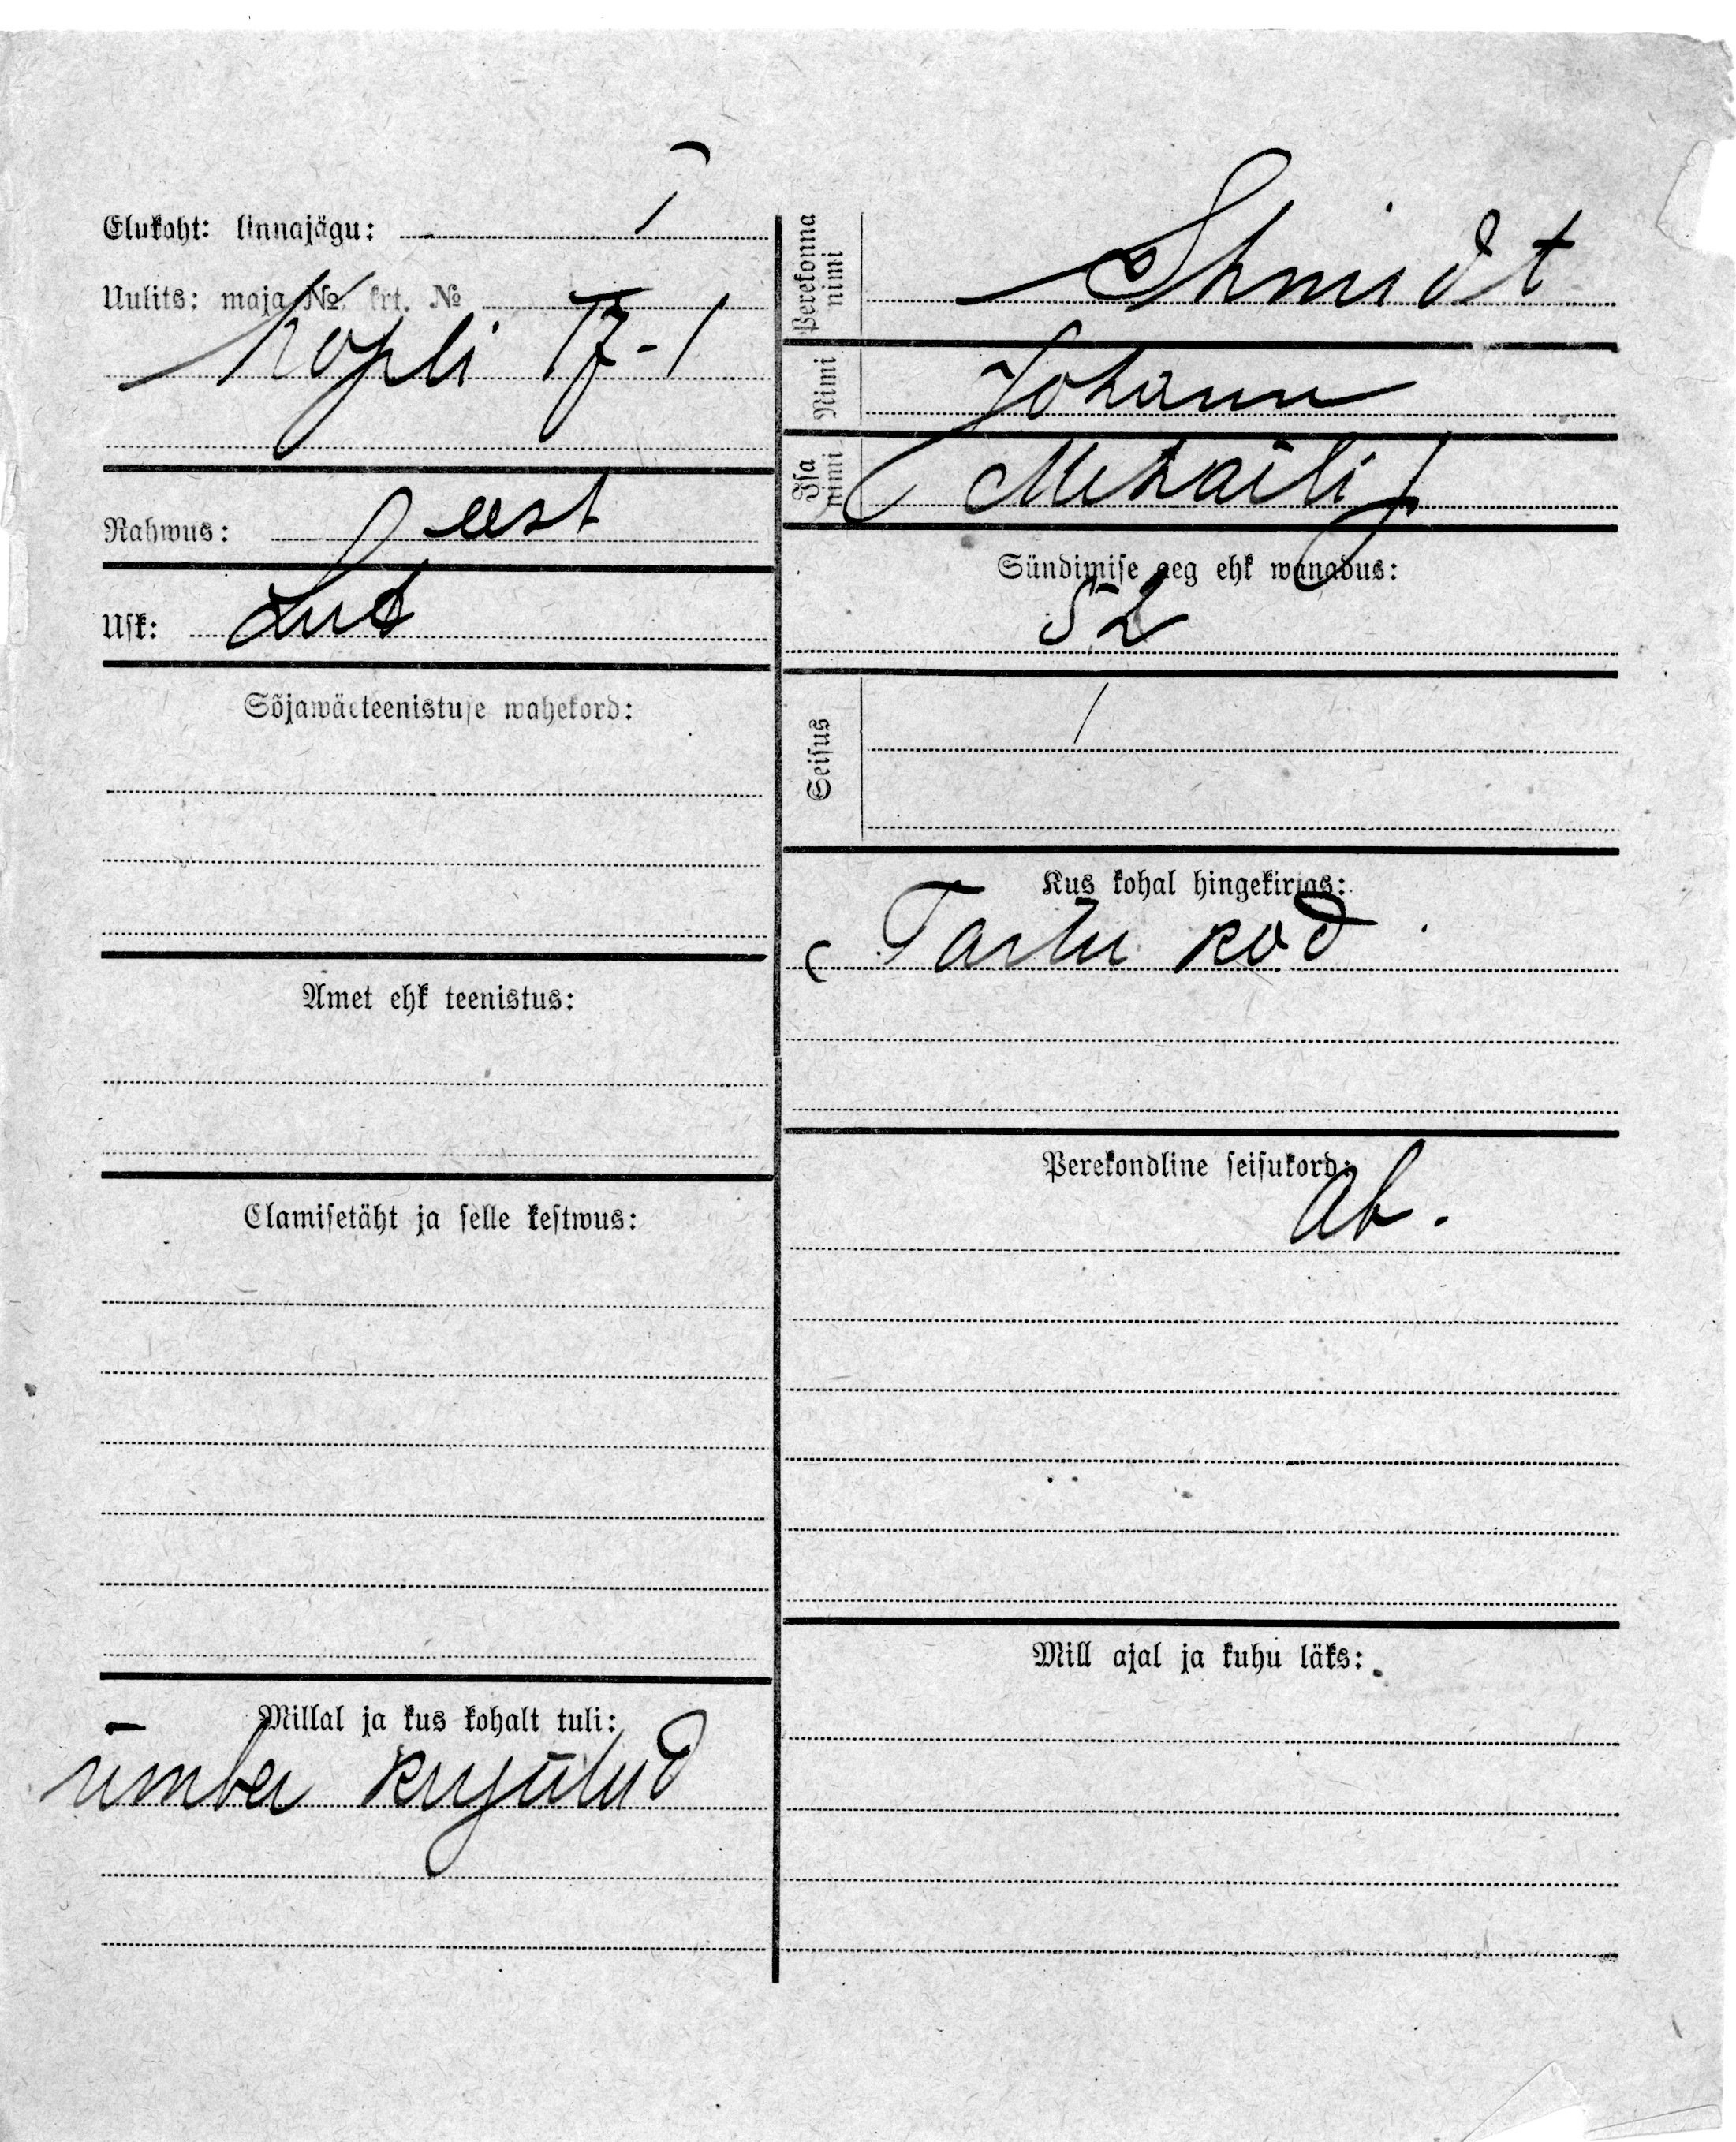 Elukoht: linnajagu: I
Uulits: maja № krt. №
Kopli 17-1
Rahwus: eest
Usk: Lut
Sõjawäeteenistuse wahekord:
Amet ehk teenistus:
Elamisetäht ja selle kestwus:
Millal ja kus kohalt tuli:
ümber
Perekonna nimi Shmidt
Nimi Johann
Isa nimi Mihaili p
Sündimise aeg ehk wanadus:
52
Seisus /
Kus kohal hingekirjas:
Tartu kod
Perekondline seisukord:
Ab.
Mill ajal ja kuhu läks: